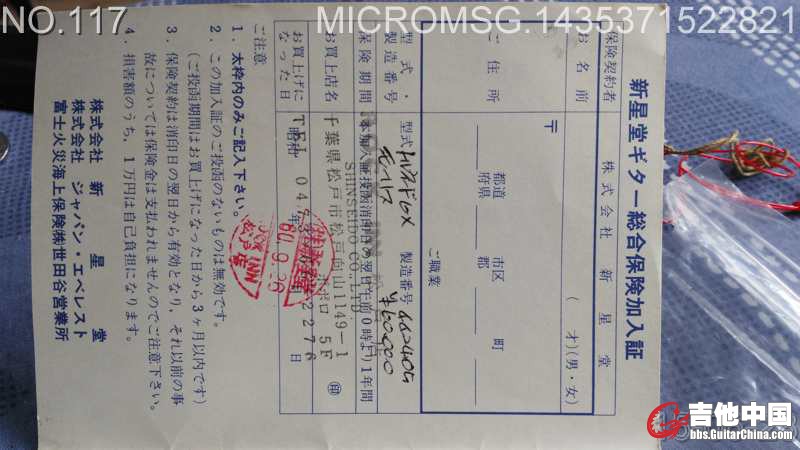 NO.117
MICROMSG.1435371522821
新星堂ギター総合保険加入証
保険契約者 株式会社 新星堂
お名前 (才)(男・女)
ご住所 〒 都道府県 市区郡 町
ご職業
型式・製造番号 型式 製造番号 662405
¥60000
保険期間 本加入証投函消印の翌日午前0時より1年間
お買上店名 SHINSEIDO CO.,LTD.
千葉県松戸市松戸向山1149-1
5F 印
TEL 04 2276
お買上げになった日 昭和 年 日
60.9.26
ご注意
1. 太枠内のみご記入下さい。
2. この加入証のご投函のないものは無効です。
(ご投函期間はお買上げになった日から3ヶ月以内です)
3. 保険契約は消印日の翌日から有効となり、それ以前の事
故については保険金は支払われませんのでご注意下さい。
4. 損害額のうち、1万円は自己負担になります。
株式会社 新星堂
株式会社 ジャパン・エベレスト
富士火災海上保険㈱世田谷営業所
吉他中国
bbs.GuitarChina.com